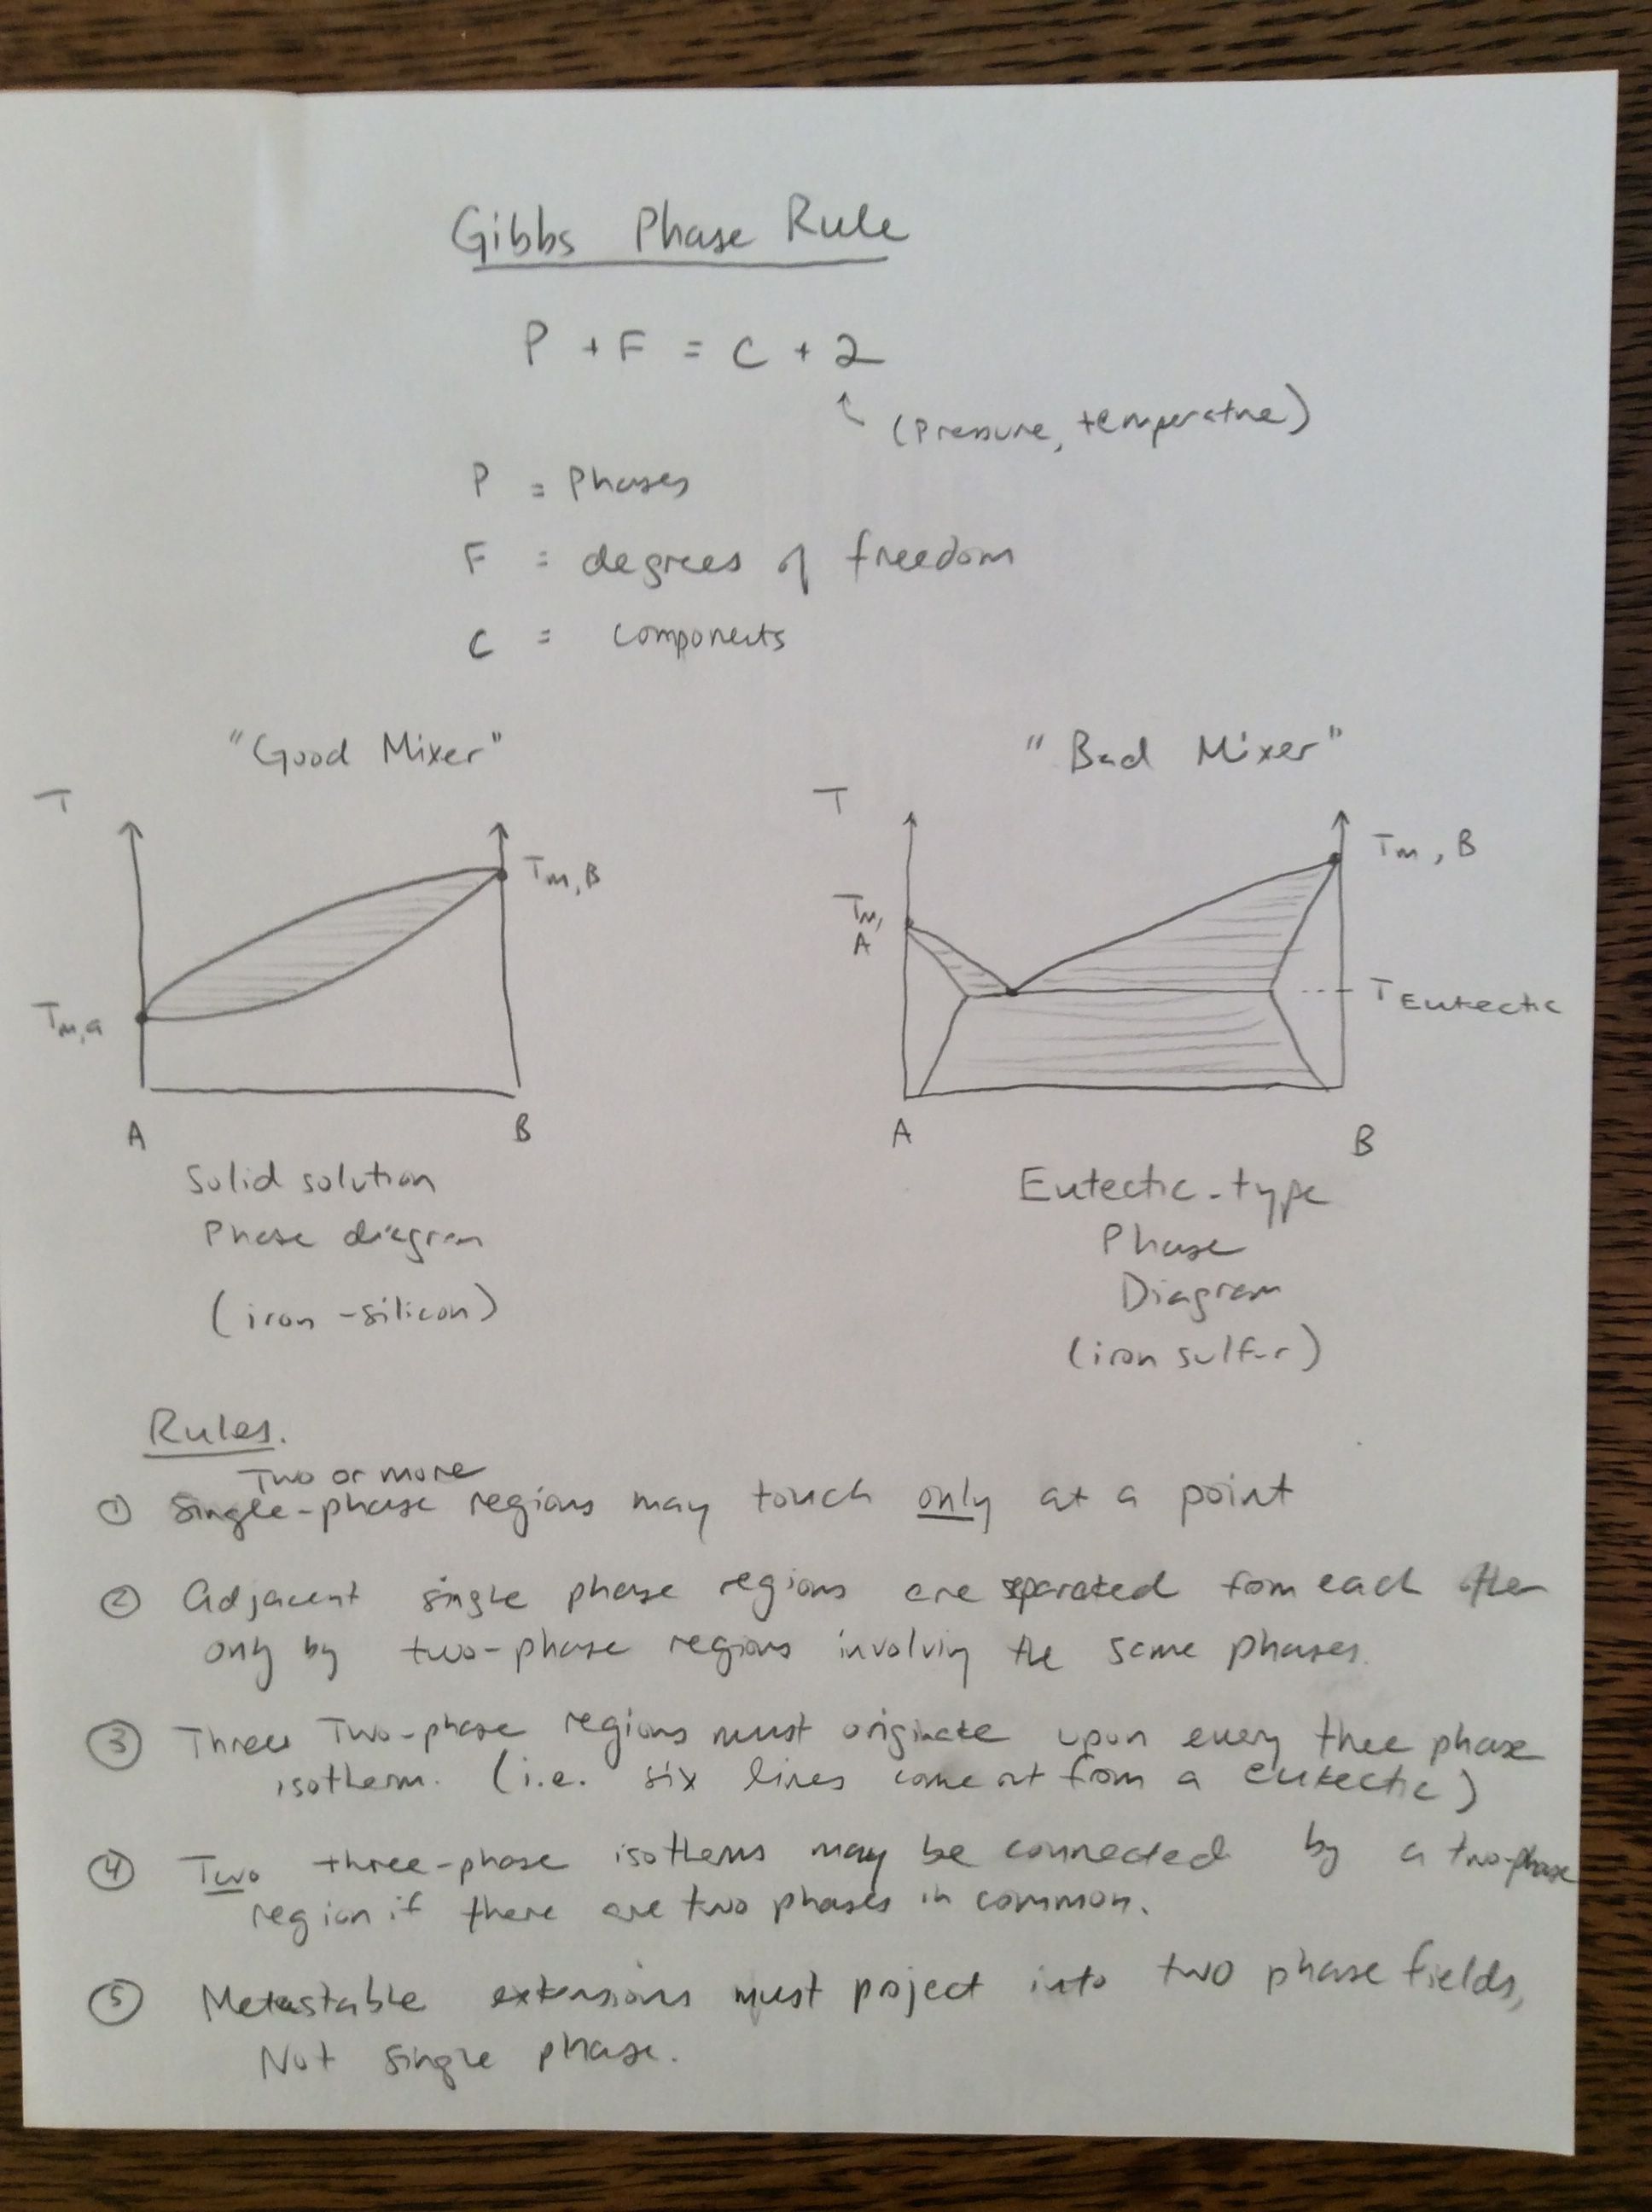 Gibbs Phase Rule
P + F = C + 2
(Pressure, temperature)
P = Phases
F = degrees of freedom
C = components
"Good Mixer"
"Bad Mixer"
T
Tm,B
Tm,a
A
B
Solid solution
Phase diagram
(iron-silicon)
T
Tm,
A
Tm, B
T Eutectic
A
B
Eutectic-type
Phase
Diagram
(iron sulfur)
Rules.
Two or more
① Single-phase regions may touch only at a point
② Adjacent single phase regions are separated from each other
only by two-phase regions involving the same phases.
③ Three Two-phase regions must originate upon every three phase
isotherm. (i.e. six lines come out from a eutectic)
④ Two three-phase isotherms may be connected by a two-phase
region if there are two phases in common.
⑤ Metastable extensions must project into two phase fields,
Not single phase.